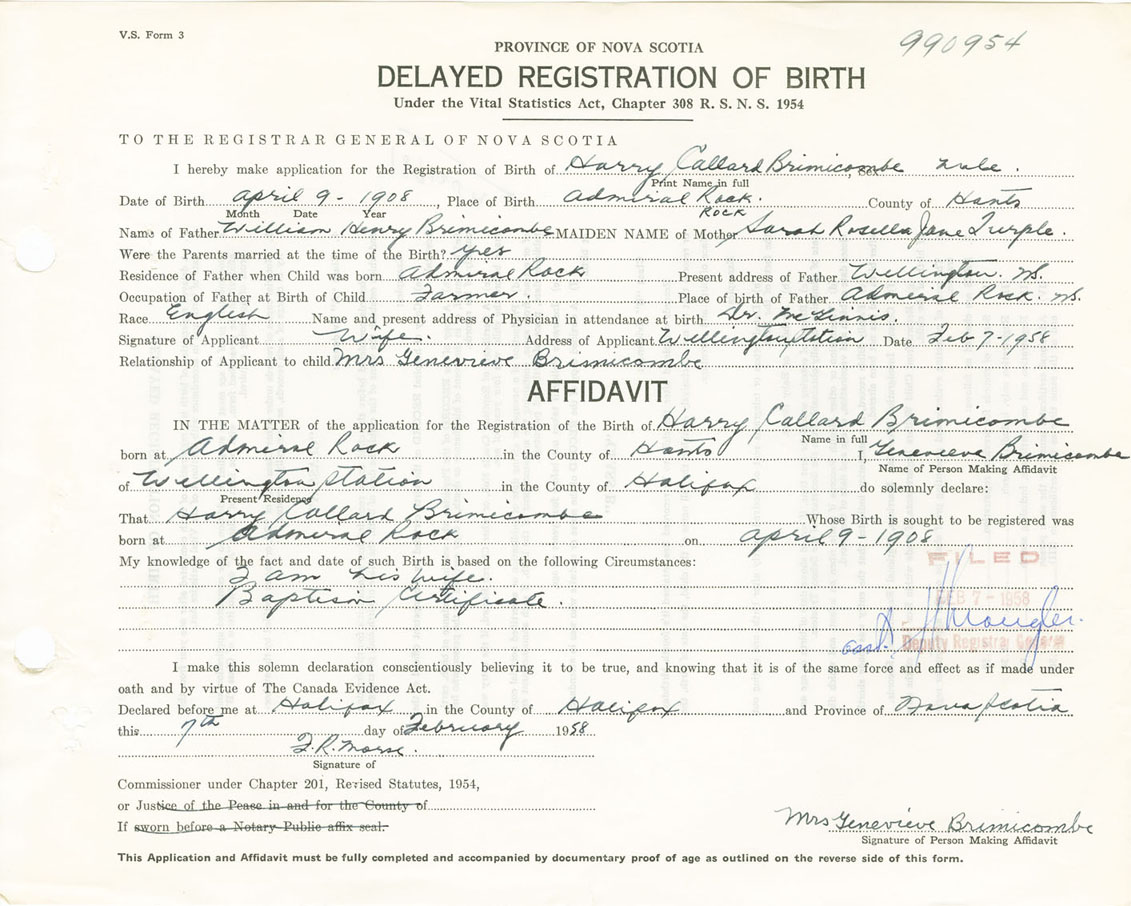 V.S. Form 3
990954
PROVINCE OF NOVA SCOTIA
DELAYED REGISTRATION OF BIRTH
Under the Vital Statistics Act, Chapter 308 R. S. N. S. 1954
TO THE REGISTRAR GENERAL OF NOVA SCOTIA
I hereby make application for the Registration of Birth of Harry Callard Brimicombe, Sex Male.
Print Name in full
Date of Birth April 9 - 1908, Place of Birth Admiral Rock. County of Hants
Month Date Year ROCK
Name of Father William Henry Brimicombe MAIDEN NAME of Mother Sarah Rosella Jane Turple.
Were the Parents married at the time of the Birth? Yes
Residence of Father when Child was born Admiral Rock Present address of Father Wellington. NS.
Occupation of Father at Birth of Child Farmer. Place of birth of Father Admiral Rock. NS.
Race English Name and present address of Physician in attendance at birth Dr. McGinnis.
Signature of Applicant Wife. Address of Applicant Wellington Station Date Feb 7 - 1958
Relationship of Applicant to child Mrs Genevieve Brimicombe
AFFIDAVIT
IN THE MATTER of the application for the Registration of the Birth of Harry Callard Brimicombe
Name in full
born at Admiral Rock in the County of Hants I, Genevieve Brimicombe
Name of Person Making Affidavit
of Wellington Station in the County of Halifax do solemnly declare:
Present Residence
That Harry Callard Brimicombe Whose Birth is sought to be registered was
born at Admiral Rock on April 9 - 1908
My knowledge of the fact and date of such Birth is based on the following Circumstances:
I am his wife.
Baptism Certificate.
FILED
FEB 7 - 1958
asst. Deputy Registrar General
I make this solemn declaration conscientiously believing it to be true, and knowing that it is of the same force and effect as if made under
oath and by virtue of The Canada Evidence Act.
Declared before me at Halifax in the County of Halifax and Province of Nova Scotia
this 7th day of February 1958
F.R. Morse.
Signature of
Commissioner under Chapter 201, Revised Statutes, 1954,
or Justice of the Peace in and for the County of
If sworn before a Notary Public affix seal.
Mrs Genevieve Brimicombe
Signature of Person Making Affidavit
This Application and Affidavit must be fully completed and accompanied by documentary proof of age as outlined on the reverse side of this form.